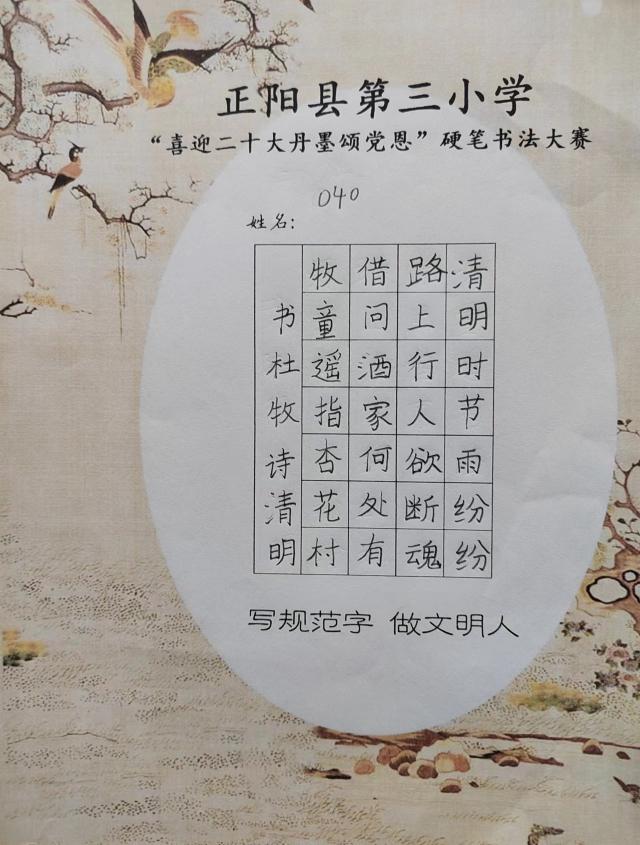 正阳县第三小学
“喜迎二十大丹墨颂党恩”硬笔书法大赛
040
姓名：
清明时节雨纷纷
路上行人欲断魂
借问酒家何处有
牧童遥指杏花村
书杜牧诗清明
写规范字 做文明人